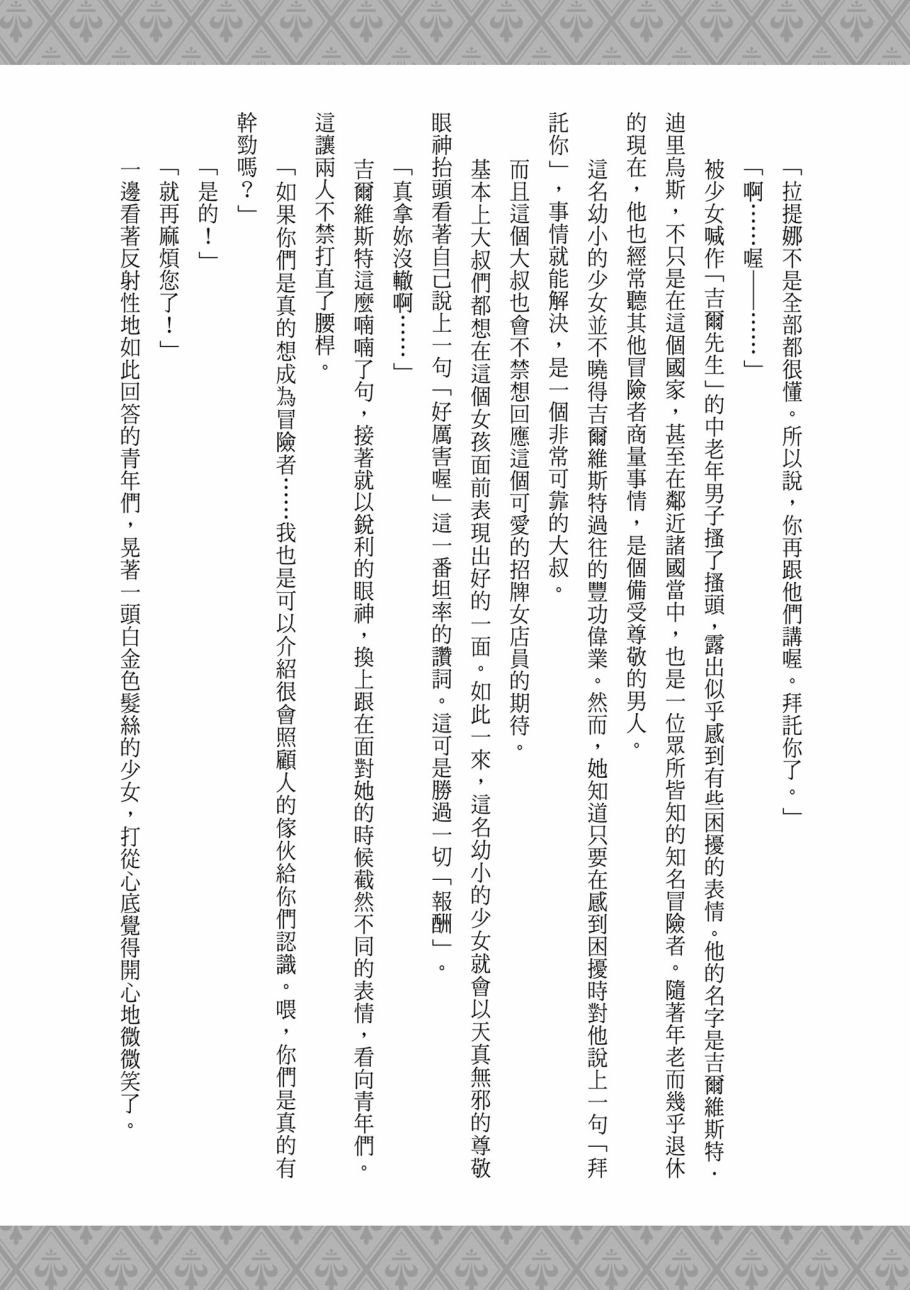 「拉提娜不是全部都很懂。所以說，你再跟他們講喔。拜託你了。」
「啊……喔——……」
被少女喊作「吉爾先生」的中老年男子搔了搔頭，露出似乎感到有些困擾的表情。他的名字是吉爾維斯特．
迪里烏斯，不只是在這個國家，甚至在鄰近諸國當中，也是一位眾所皆知的知名冒險者。隨著年老而幾乎退休
的現在，他也經常聽其他冒險者商量事情，是個備受尊敬的男人。
這名幼小的少女並不曉得吉爾維斯特過往的豐功偉業。然而，她知道只要在感到困擾時對他說上一句「拜
託你」，事情就能解決，是一個非常可靠的大叔。
而且這個大叔也會不禁想回應這個可愛的招牌女店員的期待。
基本上大叔們都想在這個女孩面前表現出好的一面。如此一來，這名幼小的少女就會以天真無邪的尊敬
眼神抬頭看著自己說上一句「好厲害喔」這一番坦率的讚詞。這可是勝過一切「報酬」。
「真拿妳沒轍啊……」
吉爾維斯特這麼喃喃了句，接著就以銳利的眼神，換上跟在面對她的時候截然不同的表情，看向青年們。
這讓兩人不禁打直了腰桿。
「如果你們是真的想成為冒險者……我也是可以介紹很會照顧人的傢伙給你們認識。喂，你們是真的有
幹勁嗎？」
「是的！」
「就再麻煩您了！」
一邊看著反射性地如此回答的青年們，晃著一頭白金色髮絲的少女，打從心底覺得開心地微微笑了。